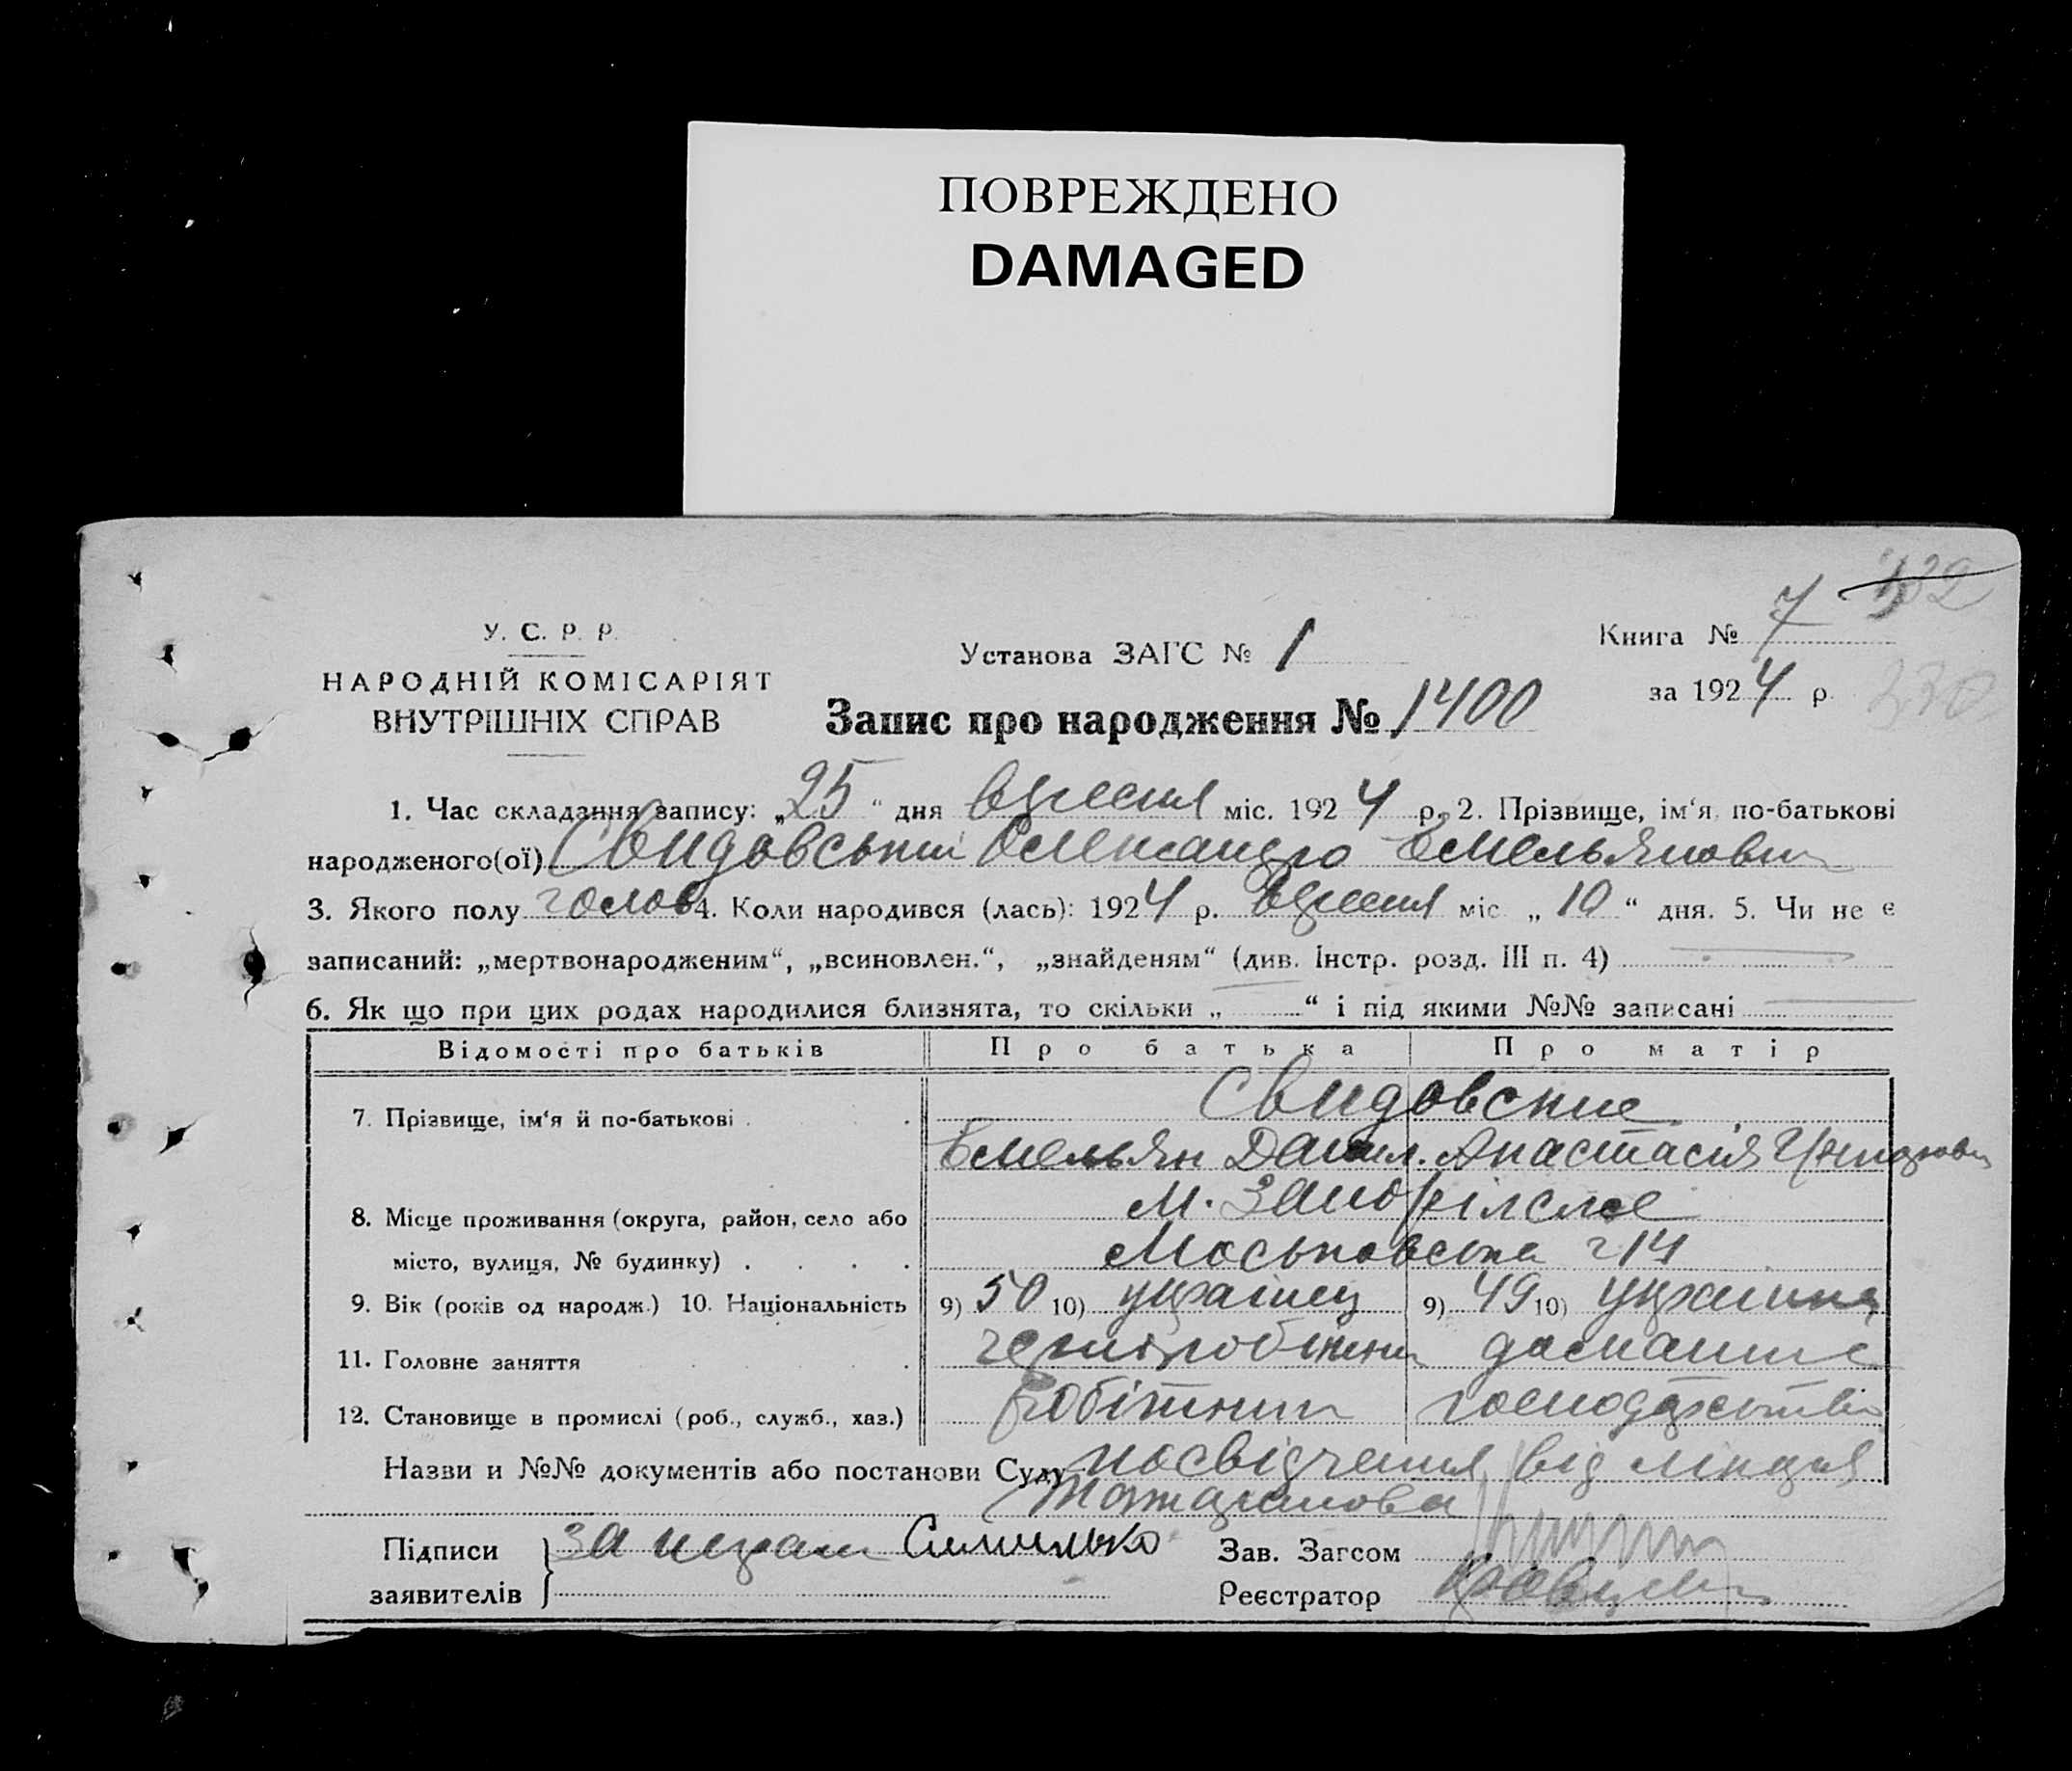 ПОВРЕЖДЕНО
DAMAGED
132
У. С. Р. Р.
НАРОДНІЙ КОМІСАРІЯТ
ВНУТРІШНІХ СПРАВ
Установа ЗАГС № 1
Запис про народження № 1400
Книга № 7
за 1924 р.
330
1. Час складання запису: „25“ дня вересня міс. 1924 р. 2. Прізвище, ім‘я, по-батькові
народженого(ої) Свидовський Олександро Емельянович
3. Якого полу голов 4. Коли народився (лась): 1924 р. вересня міс „10“ дня. 5. Чи не є
записаний: „мертвонародженим“, „всиновлен.“, „знайденям“ (див. Інстр. розд. III п. 4)
6. Як що при цих родах народилися близнята, то скільки „ “ і під якими №№ записані
Відомості про батьків Про батька Про матір
7. Прізвище, ім‘я й по-батькові Свидовские
Емельян Данил. Анастасія
8. Місце проживання (округа, район, село або м.
місто, вулиця, № будинку) Московська 14
9. Вік (років од народж.) 10. Національність 9) 50 10) українец 9) 49 10) украинка
11. Головне заняття
12. Становище в промислі (роб., служб., хаз.) робітник господарстві
Назви и №№ документів або постанови Суду посвідчення від
Підписи
заявителів
за
Зав. Загсом
Реєстратор